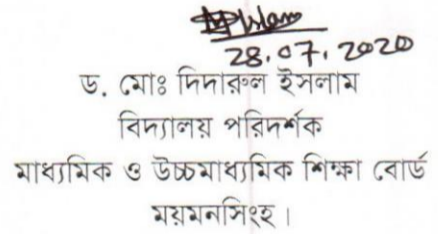 28.07.2020
ড. মোঃ দিদারুল ইসলাম
বিদ্যালয় পরিদর্শক
মাধ্যমিক ও উচ্চমাধ্যমিক শিক্ষা বোর্ড
ময়মনসিংহ।